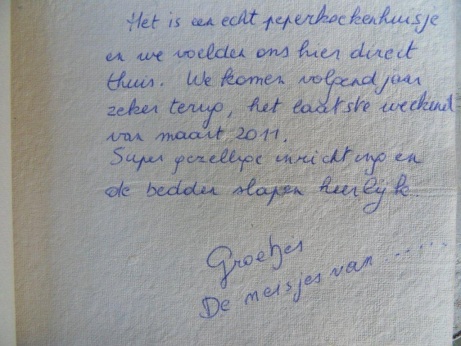 Het is een echt peperkoekenhuisje
en we voelden ons hier direct
thuis. We komen volgend jaar
zeker terug, het laatste weekend
van maart 2011.
Super gezellige inrichting en
de bedden slapen heerlijk.
Groetjes
De meisjes van ......